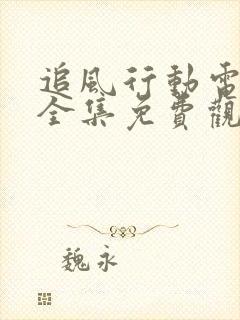 追風行動電
全集免費觀
魏永